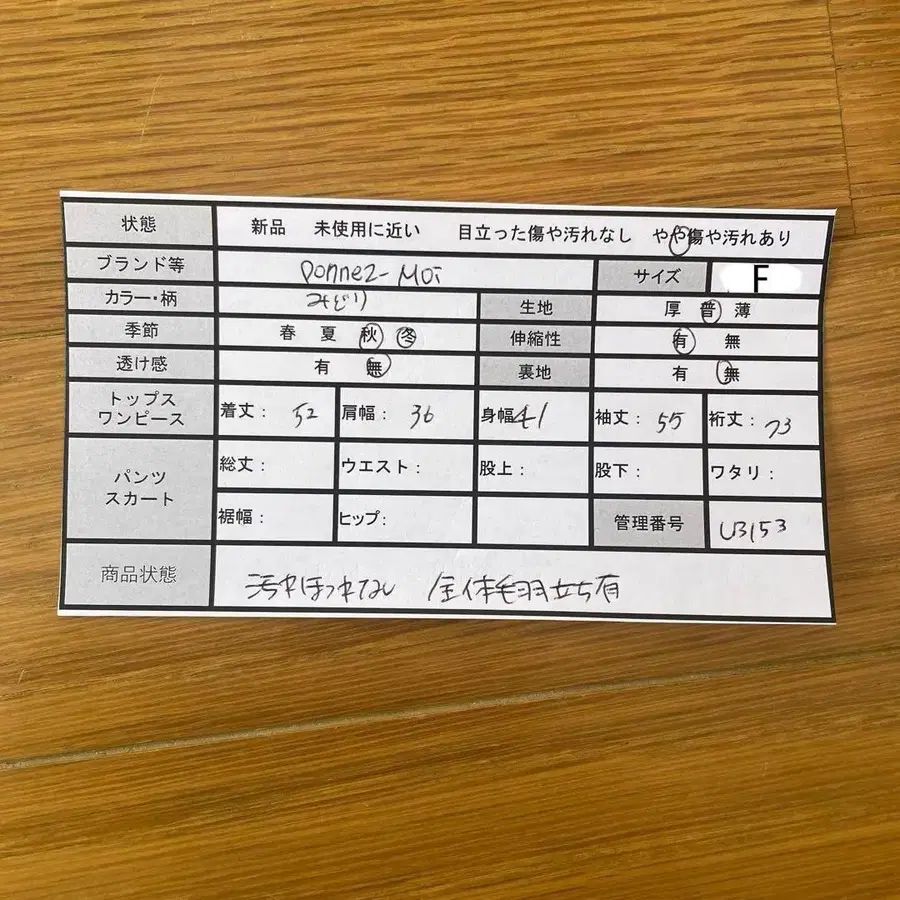 状態 新品 未使用に近い 目立った傷や汚れなし やや傷や汚れあり
ブランド等 Donnez-Moi サイズ F
カラー・柄 みどり 生地 厚 普 薄
季節 春 夏 秋 冬 伸縮性 有 無
透け感 有 無 裏地 有 無
トップス
ワンピース 着丈: 52 肩幅: 36 身幅41 袖丈: 55 裄丈: 73
パンツ
スカート 総丈: ウエスト: 股上: 股下: ワタリ:
裾幅: ヒップ: 管理番号 U3153
商品状態 汚れほつれなし 全体毛羽立ち有